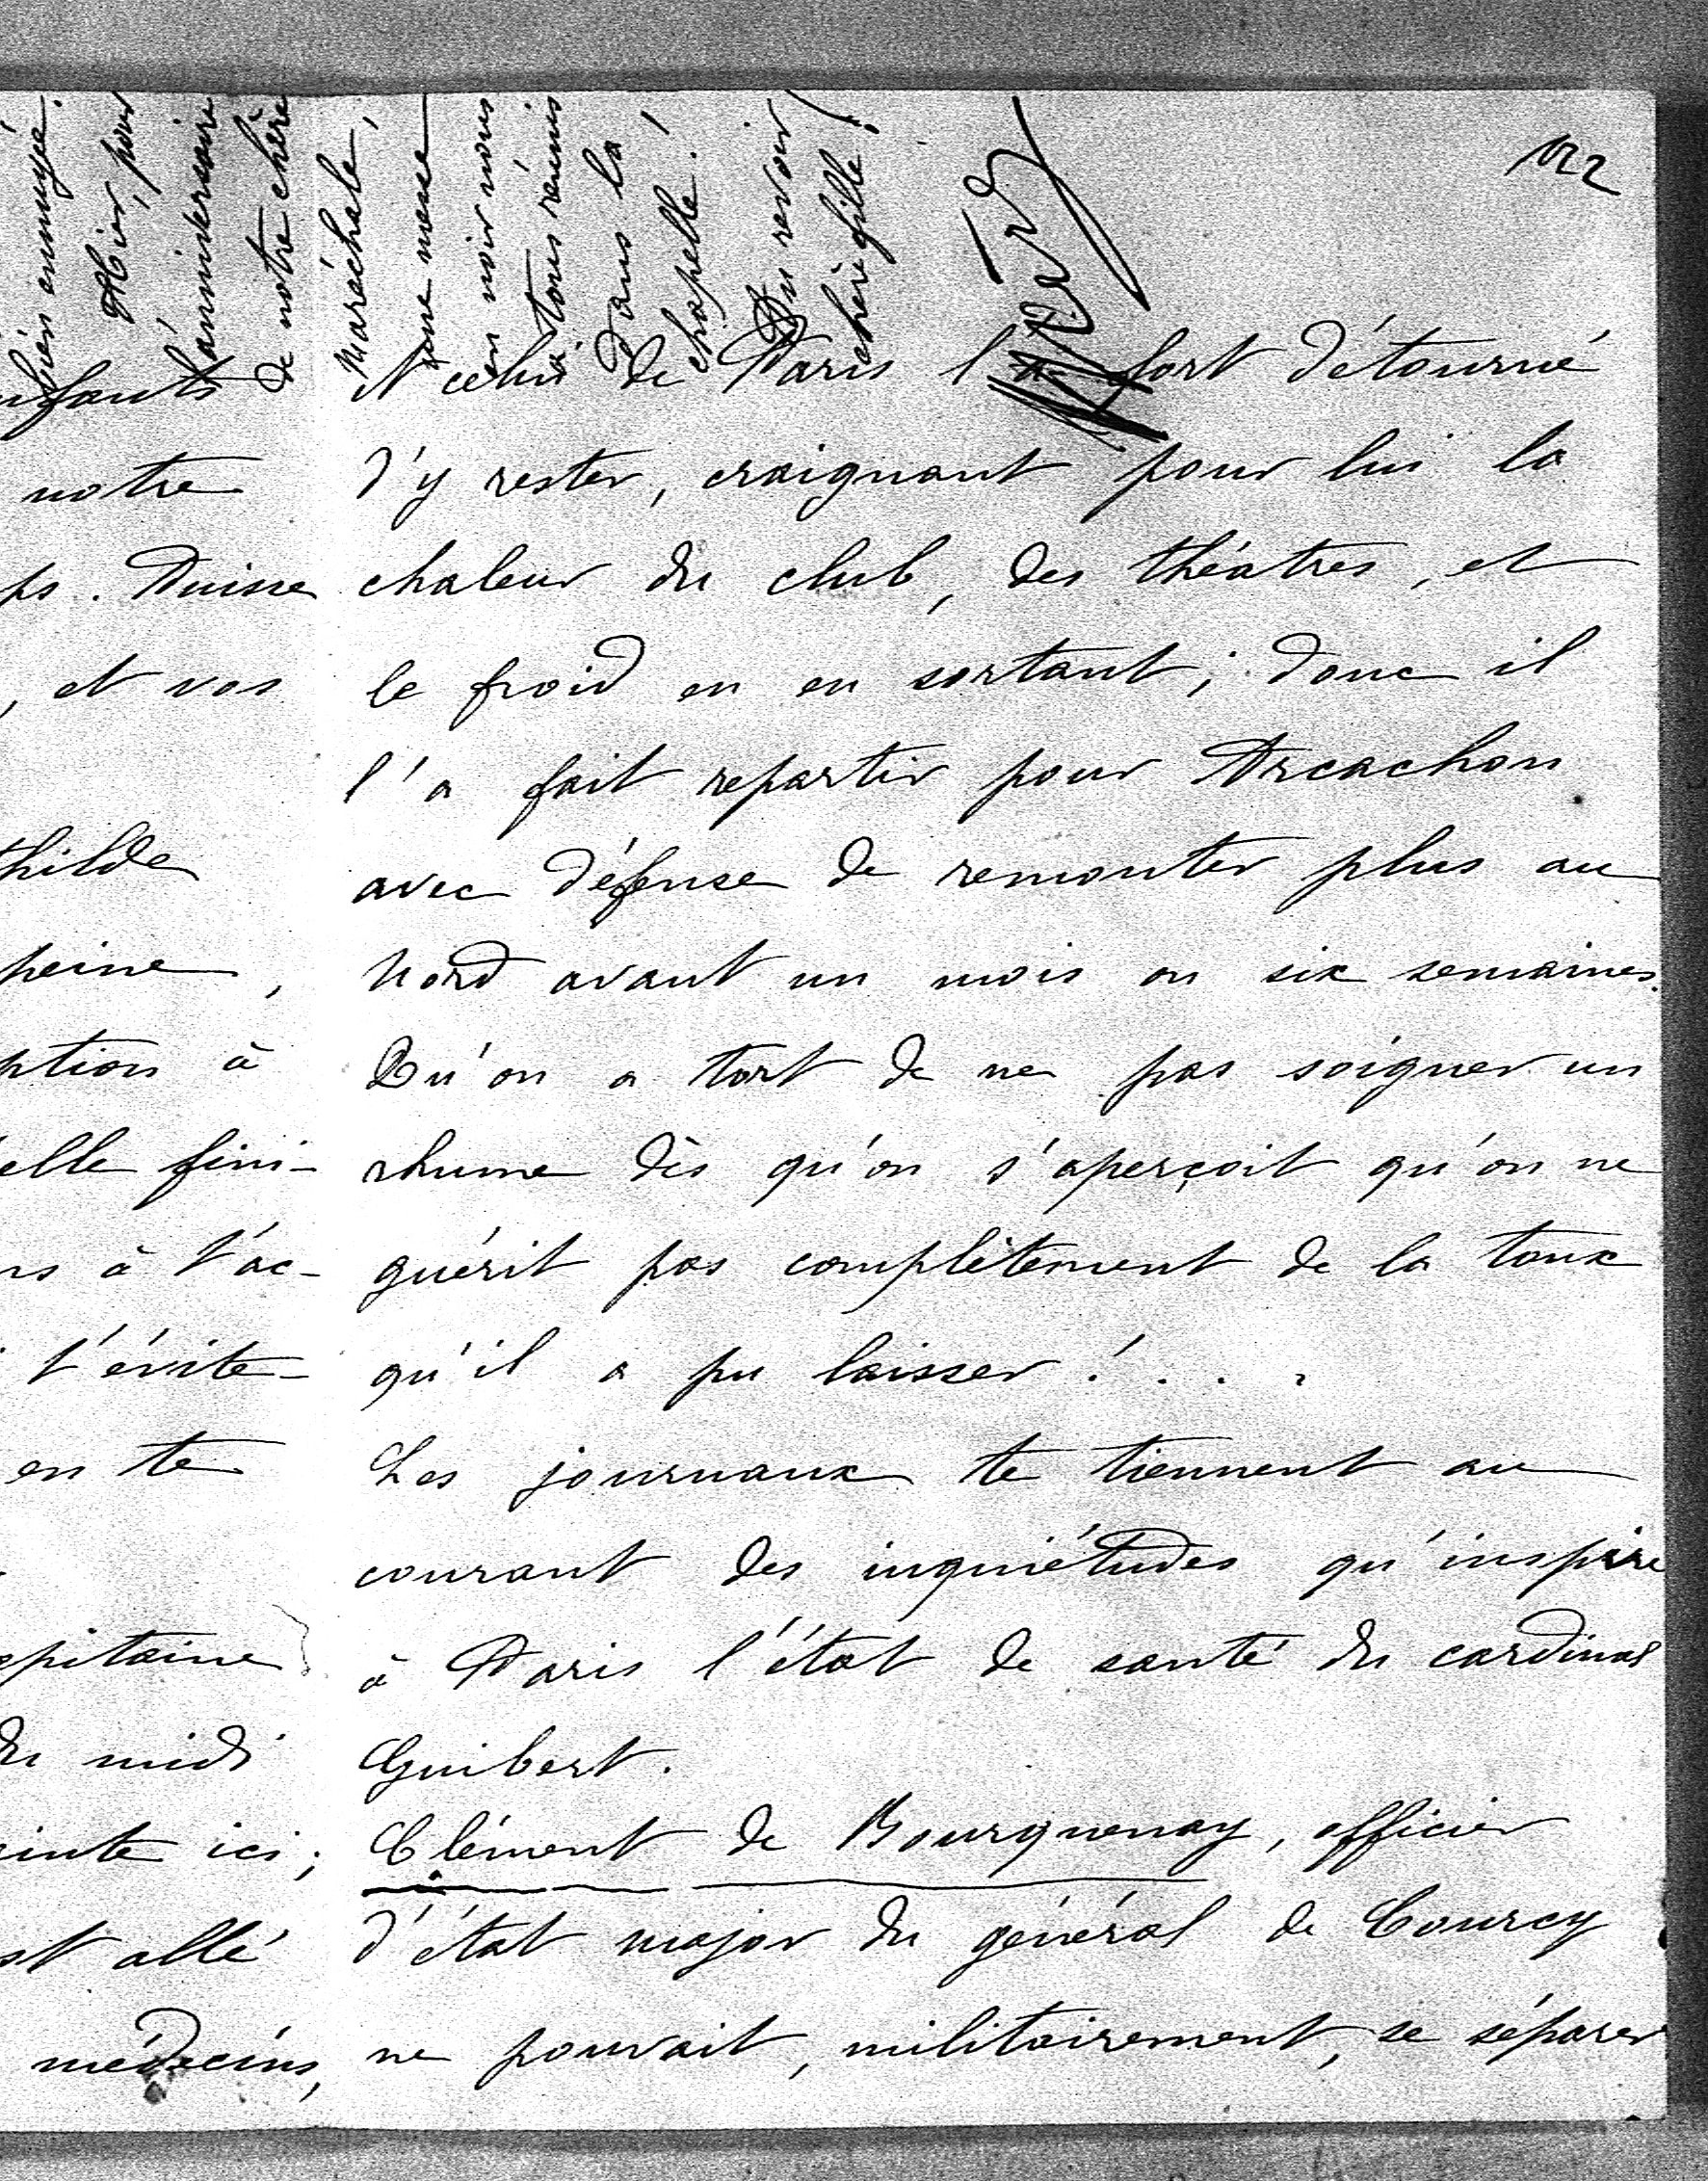 122
bien ennuyée.
Hier, pour
l'anniversaire
de notre chère
Maréchale,
une messe
en noir nous
a tous réunis
dans la
chapelle !
Au revoir
chère fille !
et celui de Paris l'a fort détourné
d'y rester, craignant pour lui la
chaleur du club, des théatres, et
le froid en en sortant ; donc il
l'a fait repartir pour Arcachon
avec défense de remonter plus au
Nord avant un mois ou six semaines.
Qu'on a tort de ne pas soigner un
rhume dès qu'on s'aperçoit qu'on ne
guérit pas complètement de la toux
qu'il a pu laisser ! . . .
Les journaux te tiennent au
courant des inquiétudes qu'inspire
à Paris l'état de santé du cardinal
Guibert.
Clément de Bourqueney, officier
d'état major du général de Courcy
ne pouvait, militairement, se séparer
nfants
notre
ps. Puisse
, et vos
thilde
peine,
ption à
elle fini-
ns à t'ac-
t'évite-
en te
apitaine
du midi
einte ici ;
st allé
médecins,